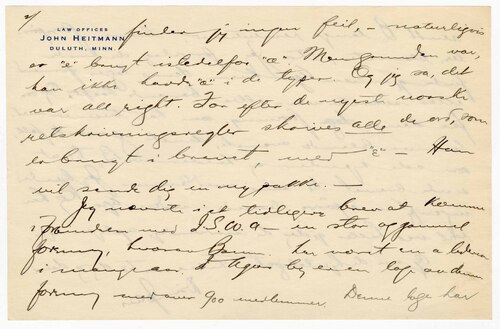 2/
LAW OFFICES
JOHN HEITMANN
DULUTH, MINN.
finder jeg ingen feil, – naturligvis
er "e" brugt istedetfor "æ" Men grunden var,
han ikke havde "æ" i de typer. Og jeg sa, det
var all right For efter de nyeste norske
retskrivningsregler skrives alle de ord, som
er brugt i brevet, med "e" – Han
vil sende dig en ny pakke. –
Jeg nævnte i et tidligere brev at komme
i forbinden med I.S.W.A – en stor
forening, hvor har vært en leder
i mange aar. I byen er en loge av denne
forening med over 900 medlemmer. Denne loge har